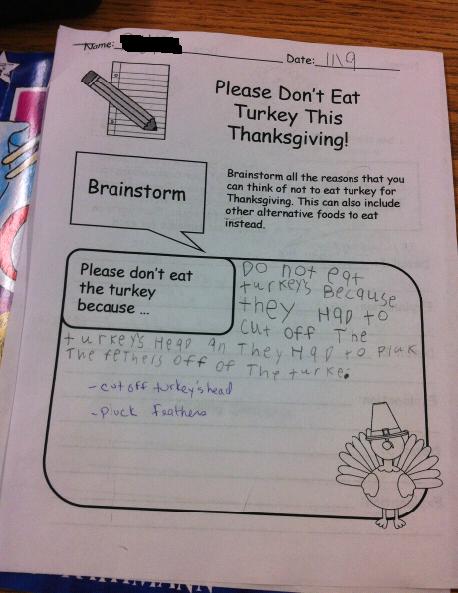 Name: Date: 11/9
Please Don't Eat
Turkey This
Thanksgiving!
Brainstorm
Brainstorm all the reasons that you
can think of not to eat turkey for
Thanksgiving. This can also include
other alternative foods to eat
instead.
Please don't eat
the turkey
because ...
Do not eat
turkeys Because
they Had to
cut off The
turkeys Head an They Had to Pluk
The fethers off of The turke.
- cut off turkey's head
- pluck feathers